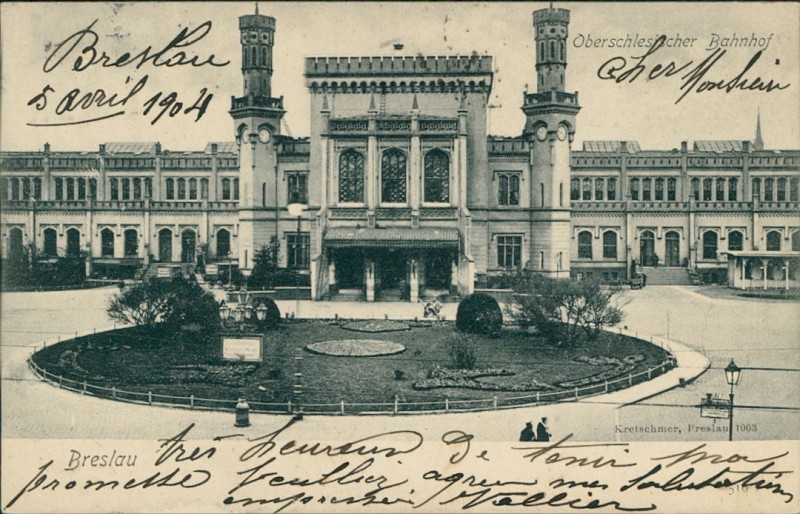 Breslau
5 avril 1904
Oberschlesischer Bahnhof
cher Monsieur
Kretschmer, Breslau 1903
Breslau
très heureux De Tenir ma
promesse Veuillez agréer mes Salutations
empressées Vallier